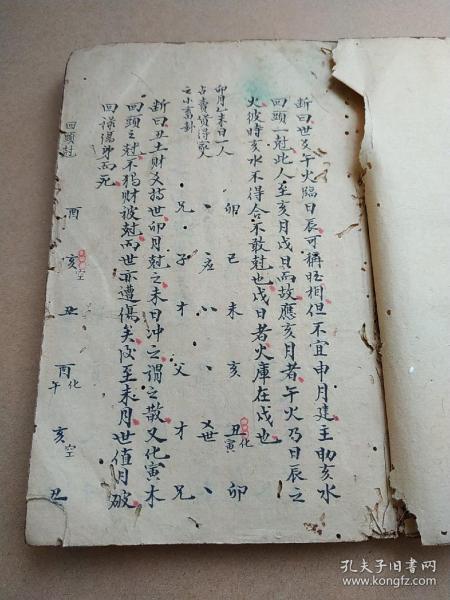 断曰世爻午火臨日辰可稱旺相但不宜申月建主助亥水
回頭一尅此人至亥月戊日而故應亥月者午火乃日辰之
火彼時亥水不得合不敢尅也戊日者火庫在戌也
卯月 未日一人
占賣貨得
之小畜卦
卯 巳 未 亥 丑化寅 卯
、 、應 八 、 世 、
兄 子 才 父 才 兄
断曰丑土財爻持世卯月尅之未日冲之謂之散又化寅木
回頭之尅不獨財被尅而世亦遭傷矣後至未月世值月破
回祿傷身而死
酉 亥空 丑 酉化午 亥空 丑
回頭尅
孔夫子旧书网
www.kongfz.com